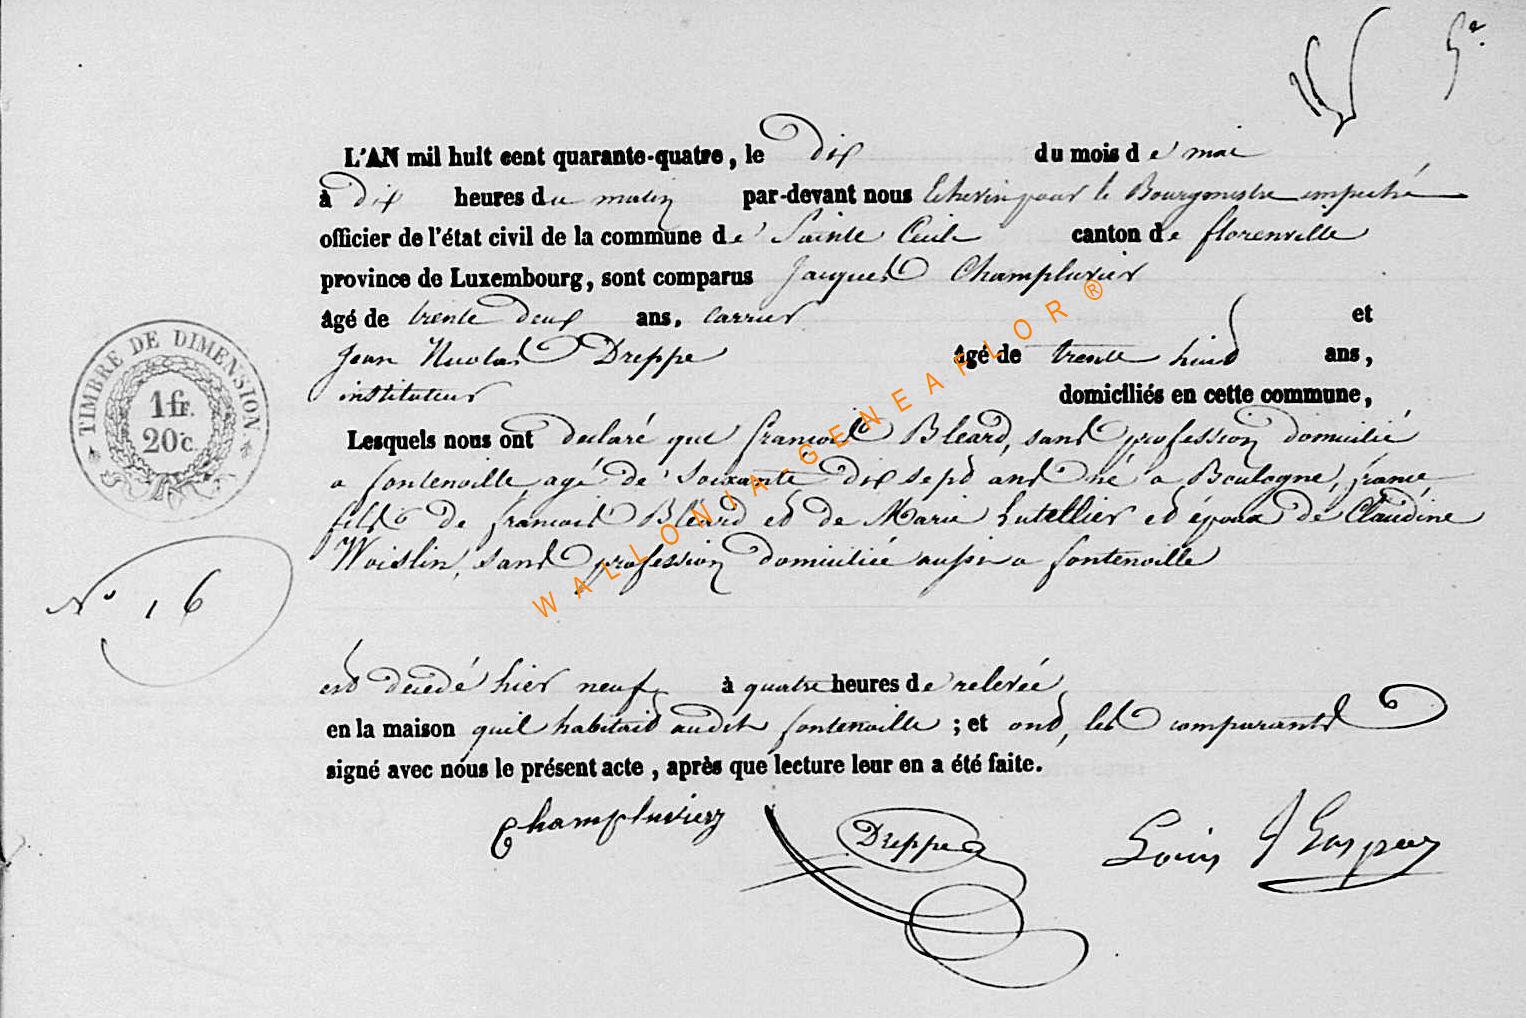 5e.
L'AN mil huit cent quarante-quatre, le dix du mois de mai
à dix heures du matin par-devant nous Echevin pour le Bourgmestre empeché
officier de l'état civil de la commune de Sainte Cecile canton de florenville
province de Luxembourg, sont comparus Jacques Champluvier
âgé de trente deux ans, carrier et
Jean Nicolas Dreppe âgé de trente huit ans,
instituteur domiciliés en cette commune,
Lesquels nous ont declaré que françois Bléard, sans profession domicilié
a fontenoille, agé de soixante dix sept ans né a Boulogne, france
fils de françois Bléard et de Marie Lutellier et époux de Claudine
Woislin, sans profession domiciliée aussi a fontenoille
est decedé hier neuf à quatre heures de relevée
en la maison quil habitait audit fontenoille ; et ont, les comparants
signé avec nous le présent acte, après que lecture leur en a été faite.
Champluvier Dreppe Louis J Gaspar
TIMBRE DE DIMENSION
1 fr.
20 c.
No 16
WALLONIA-GENEAFLOR ®